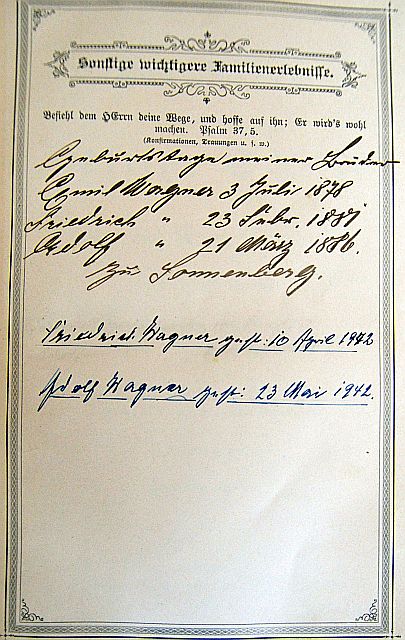 Sonstige wichtigere Familienerlebnisse.
Befiehl dem HErrn deine Wege, und hoffe auf ihn; Er wird's wohl
machen. Psalm 37, 5.
(Konfirmationen, Trauungen u. s. w.)
Geburtstage meiner Brüder
Emil Wagner 3 Juli 1878
Friedrich " 23 Febr. 1881
Adolf " 21 März 1886.
zu Sonnenberg.
Friedrich Wagner gest: 10 April 1942
Adolf Wagner gest: 23 Mai 1942.